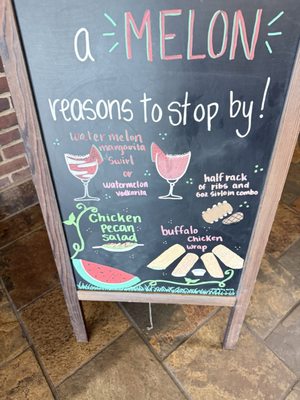 a MELON
reasons to stop by!
watermelon
margarita
swirl
or
watermelon
vodkarita
half rack
of ribs and
6oz sirloin combo
Chicken
pecan
salad
buffalo
Chicken
wrap